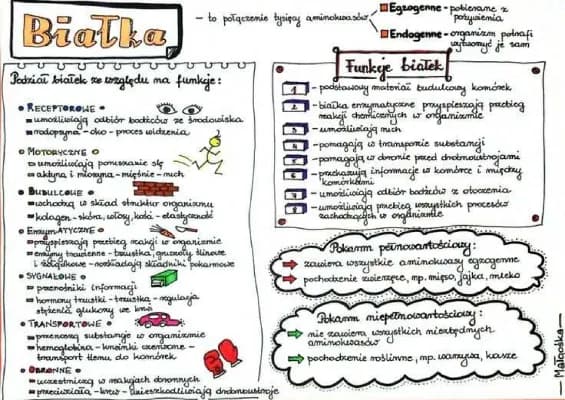 Białka
– to połączenie tysięcy aminokwasów
Egzogenne – pobierane z
pożywienia
Endogenne – organizm potrafi
wytworzyć je sam
Podział białek ze względu na funkcje:
RECEPTOROWE
umożliwiają odbiór bodźców ze środowiska
rodopsyna – oko – proces widzenia
MOTORYCZNE
umożliwiają poruszanie się
aktyna i miozyna – mięśnie – ruch
BUDULCOWE
wchodzą w skład struktur organizmu
kolagen – skóra, włosy, kości – elastyczność
Enzymatyczne
przyspieszają przebieg reakcji w organizmie
enzymy trawienne – trzustka, gruczoły ślinowe
i żołądkowe – rozkładają składniki pokarmowe
SYGNAŁOWE
przenośniki informacji
hormony trzustki – trzustka – regulacja
stężenia glukozy we krwi
TRANSPORTOWE
przenoszą substancje w organizmie
hemoglobina – krwinki czerwone –
transport tlenu do komórek
OBRONNE
uczestniczą w reakcjach obronnych
przeciwciała – krew – unieszkodliwiają drobnoustroje
Funkcje białek
1 – podstawowy materiał budulcowy komórek
2 – białka enzymatyczne przyspieszają przebieg
reakcji chemicznych w organizmie
3 – umożliwiają ruch
4 – pomagają w transporcie substancji
5 – pomagają w obronie przed drobnoustrojami
6 – przekazują informacje w komórce i między
komórkami
7 – umożliwiają odbiór bodźców z otoczenia
8 – umożliwiają przebieg wszystkich procesów
zachodzących w organizmie
Pokarm pełnowartościowy:
zawiera wszystkie aminokwasy egzogenne
pochodzenie zwierzęce, np. mięso, jajka, mleko
Pokarm niepełnowartościowy:
nie zawiera wszystkich niezbędnych
aminokwasów
pochodzenie roślinne, np. warzywa, kasze
– Małgośka –